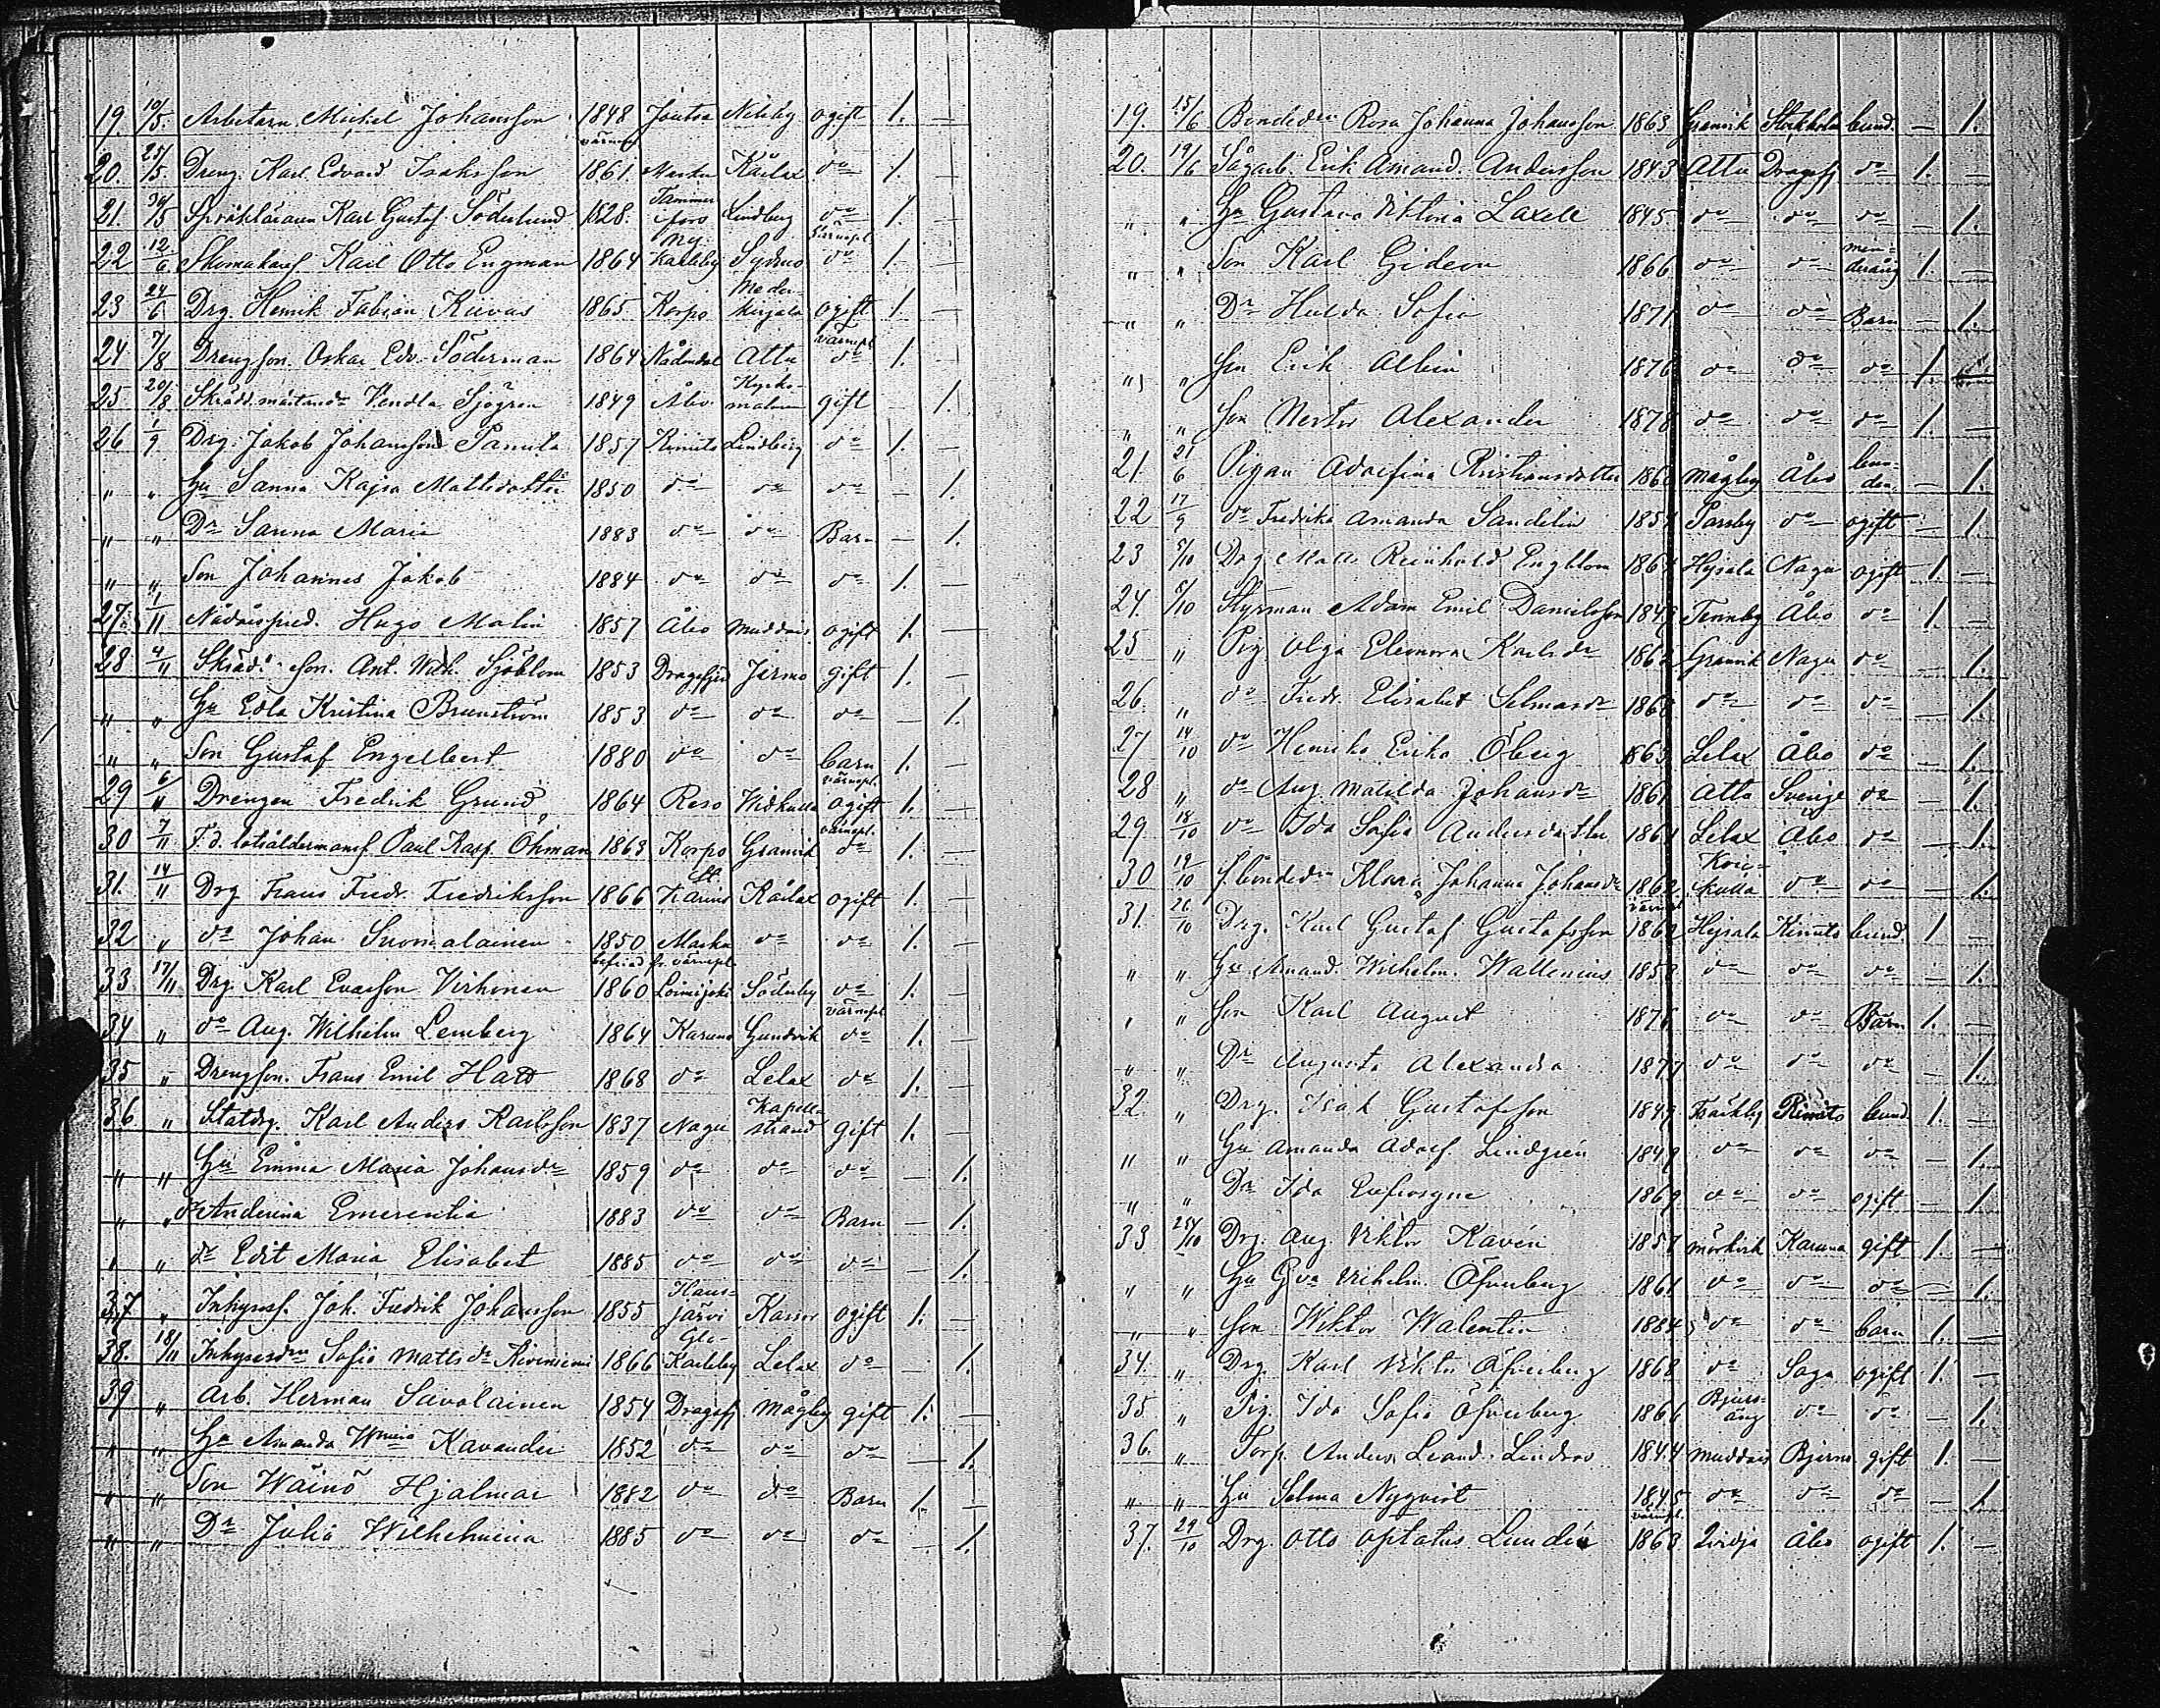 19. 10/5. Arbetaren Mickel Johansson 1848 Joutsa Nilsby ogift 1. —
värnepl.
20. 25/5. Dreng. Karl Edvard Isaksson 1861 Masku Kårlax do 1. —
21. 30/5 Språkläraren Karl Gustaf Söderlund 1828. Tammerfors Lindberg do 1. —
22 12/6 Skomakaref. Karl Otto Engman 1864 Ny Karleby Sydmo värnepl. do 1. —
23 24/6 Drg. Henrik Fabian Kiivas 1865 Korpo Mederkirjala ogift 1. —
24. 7/8 Drengson. Oskar Edv. Söderman 1864 Nådendal Attu värnepl. do 1. —
25 20/8 Skrädd. mästaredr Vendla Sjögren 1849 Åbo Kyrkomalmen gift — 1.
26 1/9 Drg. Jakob Johansson Pamila 1857 Kimito Lindberg do 1. —
" " Hu Sanna Kajsa Mattsdotter 1850 do do do — 1.
" " Dr Sanna Maria 1883 do do Barn — 1.
" " Son Johannes Jakob 1884 do do do 1. —
27. 1/11 Nådårspred. Hugo Malin 1857 Åbo Muddais ogift 1. —
28 4/11 Skräd. son. Ant. Wilh. Sjöblom 1853 Dragsfjerd Järmo gift 1. —
" " Hu Edla Kristina Brunström 1853. do do do — 1.
" " Son Gustaf Engelbert 1880 do do barn 1. —
29 6/" Drengen Fredrik Grund 1864 Reso Widkulla värnepl. ogift 1. —
30 7/11 F.d. lotsåldermansf. Paul Kasp. Öhman 1863 Korpo Granvik värnepl. do 1. —
31. 14/11 Drg Frans Fredr. Fredriksson 1866 St. Karins Kårlax ogift 1. —
32 " do Johan Suomalainen 1850 Masku do do 1. —
befriad fr. värnepl.
33 17/11 Drg. Karl Evasson Virtonen 1860 Loimijoki Söderby do 1. —
34 " do Aug. Wilhelm Lemberg 1864 Karuna Gundvik värnepl do 1. —
35 " Drengson. Frans Emil Hard 1868 do Lelax do 1. —
36 " Statdrg. Karl Anders Karlsson 1837 Nagu Kapellstrand gift 1. —
" " Hu Emma Maria Johansdr 1859 do do do — 1.
" " dr Anderina Emerentia 1883 do do Barn — 1.
" " dr Edit Maria Elisabet 1885 do do do — 1.
37 " Inhysesf. Joh. Fredrik Johansson 1855 Hausjärvi Kassor ogift 1. —
38. 18/11 Inhysesdrn Sofia Mattsdr Niviniemi 1866 Gla-Karleby Lelax do — 1.
39 " Arb. Herman Savolainen 1854 Dragsfj Mågby gift 1. —
" " Hu Amanda Wmina Kavander 1852 do do do — 1.
" " Son Wäinö Hjalmar 1882 do do Barn 1. —
" " Dr Julia Wilhelmina 1885 do do do — 1.
19. 15/6 Bondedrn Rosa Johanna Johansson 1863 Granvik Stockholm bund. — 1.
20. 19/6 Sågarb. Erik Amand. Andersson 1843 Attu Dragsfj do 1. —
" " Hu Gustava Viktoria Laxell 1845. do do do — 1.
" " Son Karl Gideon 1866 do do minderårig 1. —
" " Dr Hulda Sofia 1871 do do Barn — 1.
" " Son Erik Albin 1876 do do do 1
" " Son Nestor Alexander 1878 do do do 1. —
21. 21/6 Pigan Adolfina Kristiansdotter 1860 Mågby Åbo bunden — 1.
22 17/9 do Fredrika Amanda Sandelin 1854 Parsby do ogift — 1.
23 5/10 Drg Matts Reinhold Engblom 1864 Hysala Nagu ogift 1. —
24. 5/10 Styrman Adam Emil Danielsson 1849 Tennby Åbo do 1. —
25 " Pig. Olga Eleonora Karlsdr 1862 Granvik Nagu do — 1.
26. " do Fredr. Elisabet Selmasdr 1868 do do do — 1.
27 14/10 do Henrika Erika Öberg 1863 Lelax Åbo do — 1.
28 " do Aug. Matilda Johansdr 1861 Attu Sverige do — 1.
29 18/10 do Ida Sofia Andersdotter 1864 Lelax Åbo do — 1.
30 19/10 f. bondedrn Klara Johanna Johansdr 1862 Korskulla do do — 1.
värnepl
31. 26/10 Drg. Karl Gustaf Gustafsson 1862 Hysala Kimito bund. 1 —
" " Hu Amand. Wilhelm. Wallenius 1858 do do do — 1.
" " Son Karl August 1876 do do Barn 1. —
" " Dr Augusta Alexandra 1877 do do do — 1.
32. " Drg. Isak Gustafsson 1849 Fräckby Kimito bund. 1. —
" " Hu Amanda Adolf. Lindgren 1849 do do do — 1.
" " Dr Ida Eufrosyne 1869 do do ogift — 1.
33 Drg. Aug. Viktor Kavén 1857 Mörkvik Karuna gift 1. —
" " Hu Gva Vilhelm. Öfverberg 1861 do do do — 1.
" " Son Wiktor Walentin 1884 do do barn 1. —
34. " Drg. Karl Viktor Öfverberg 1868 do Sagu ogift 1. —
35 " Pig. Ida Sofia Öfverberg 1866 Bjursäng do do — 1.
36. " Torp. Anders Leand. Lindroos 1844 Muddais Bjerno gift 1. —
" " Hu Selma Nyqvist 1845 do do do — 1.
värnepl.
37. 29/10 Drg. Otto Optatus Lundén 1863 Qvidja Åbo ogift 1. —